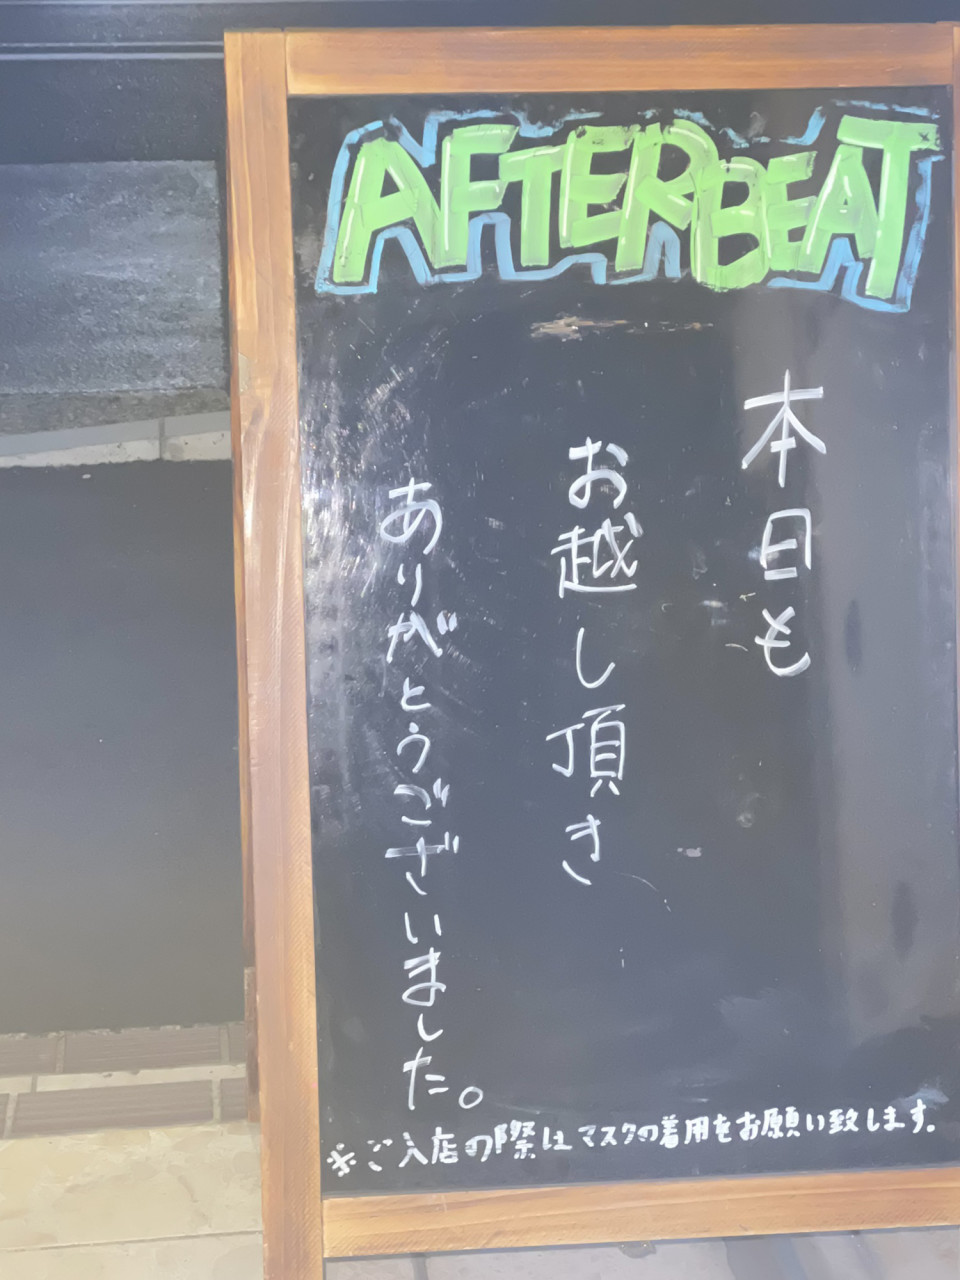 AFTERBEAT
本日も
お越し頂き
ありがとうございました。
※ご入店の際はマスクの着用をお願い致します。